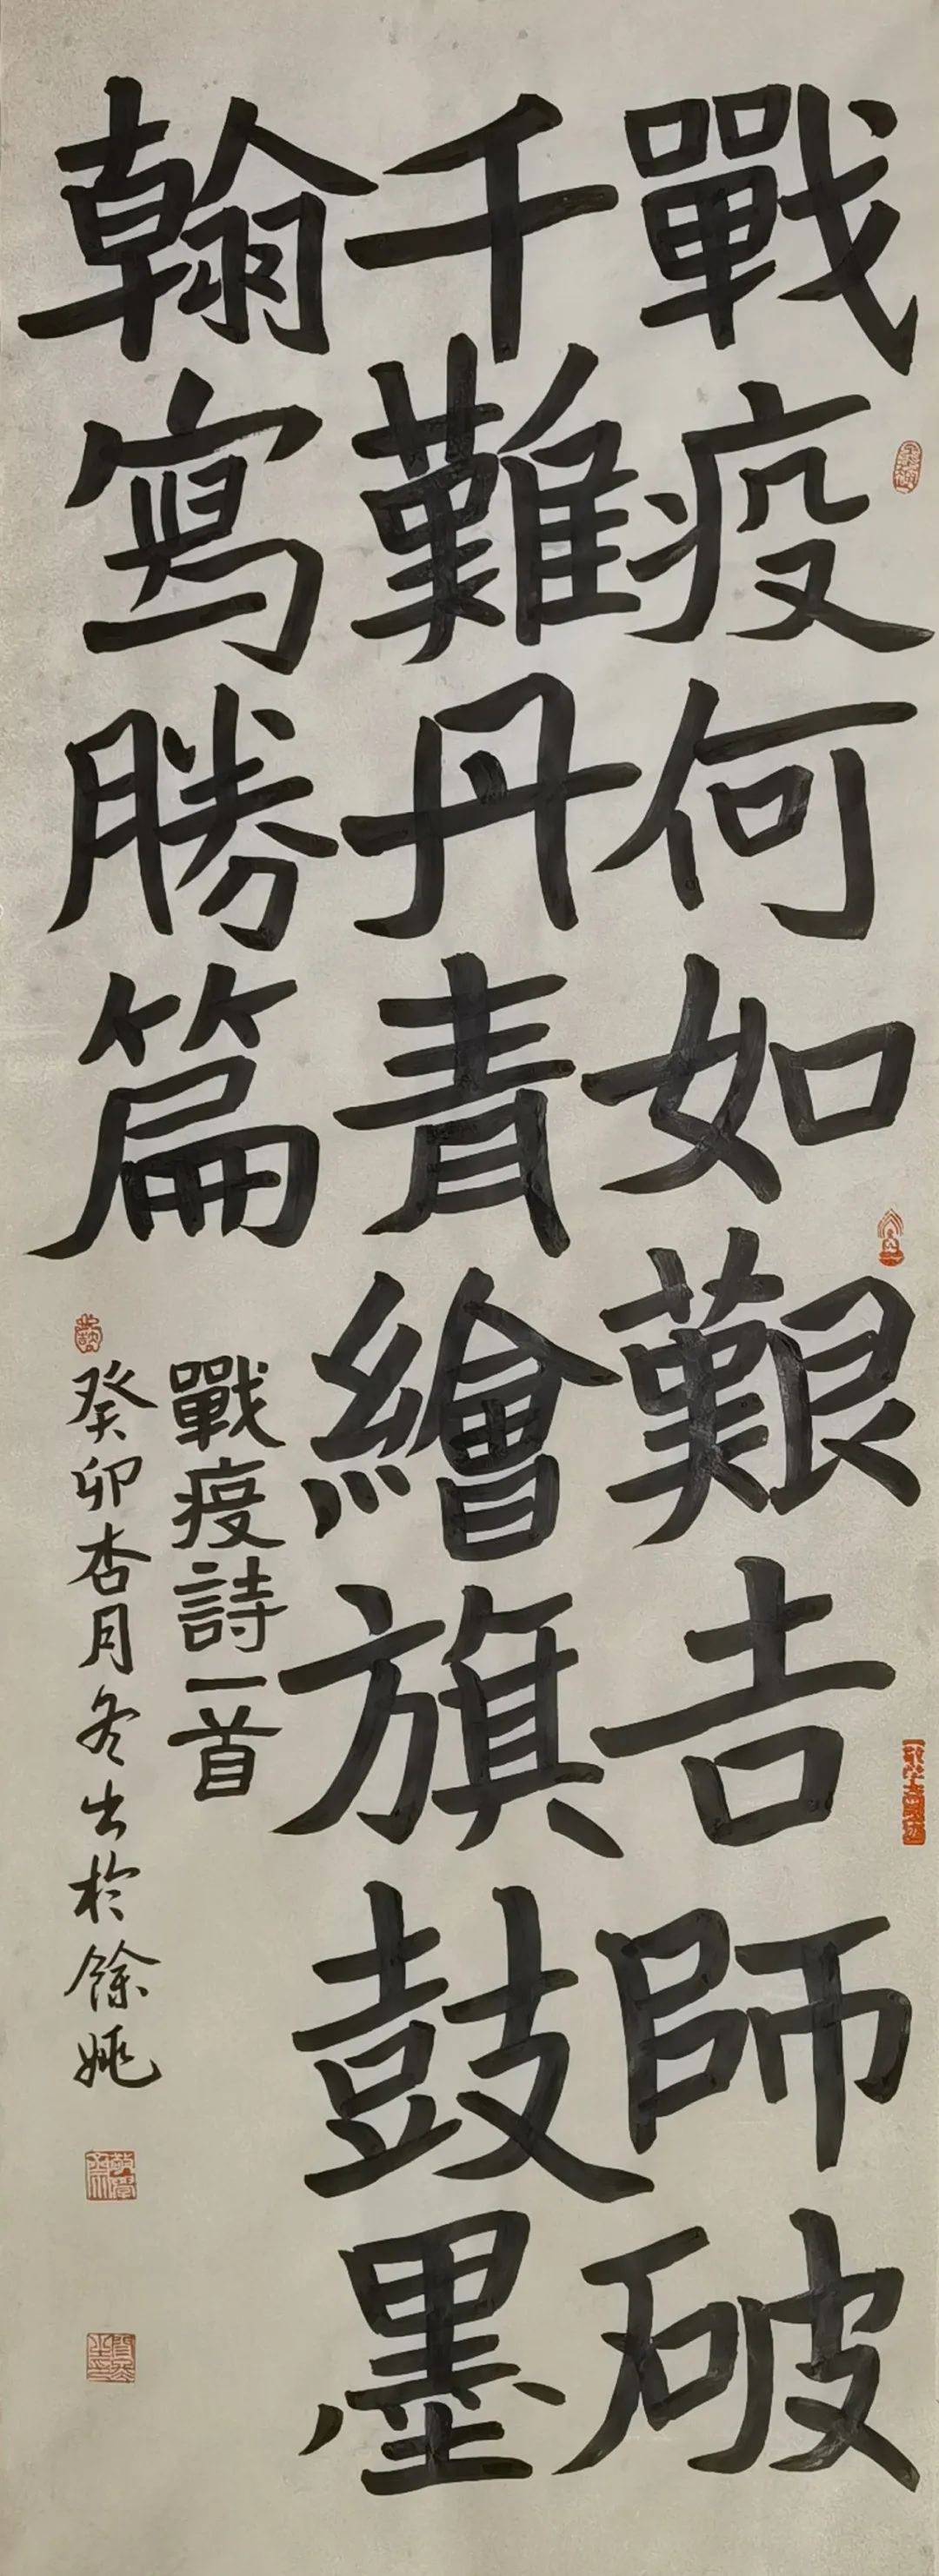 戰疫何如艱吉師破
千難丹青繪旗鼓墨
翰寫勝篇
戰疫詩一首
癸卯杏月冬出於餘姚